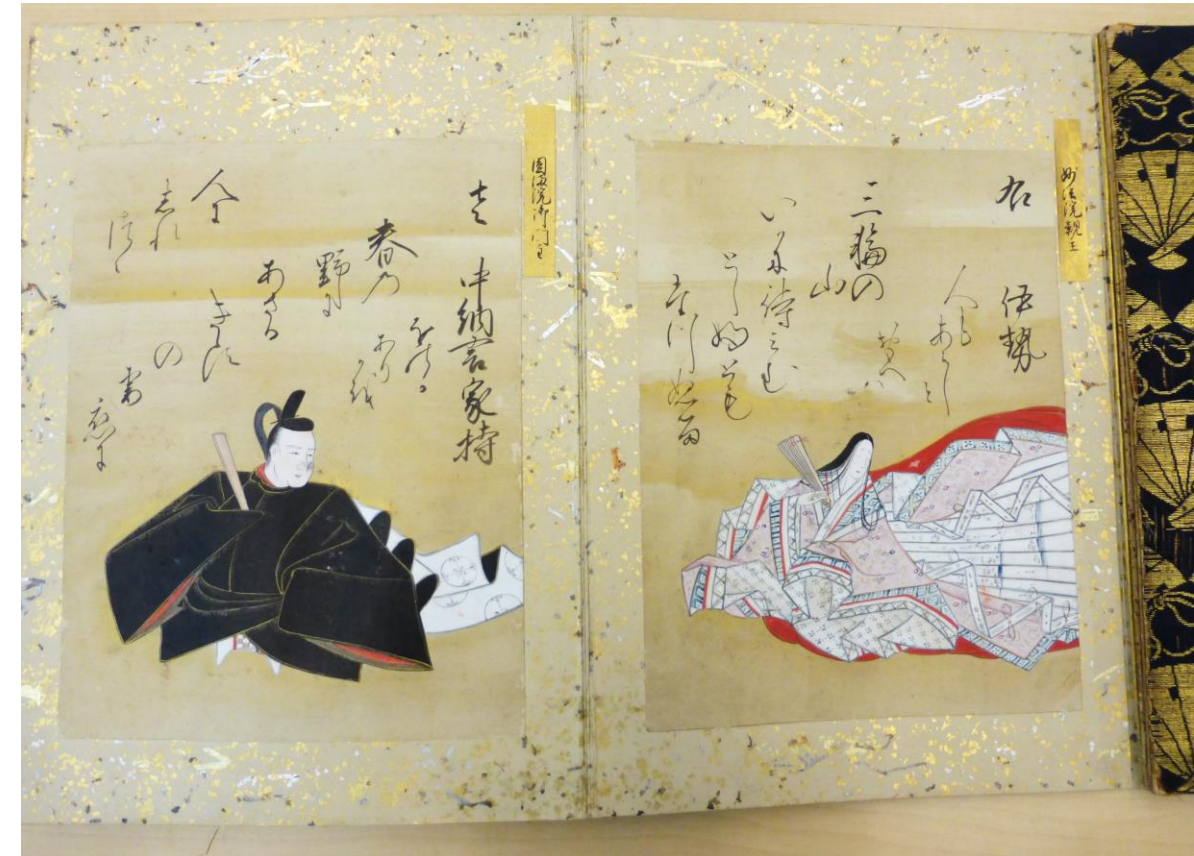 妙法院親王
右 伊勢
三輪の
山
いかに待みむ
とし婦とも
人もあらしと
おもへは
圓満院御門主
左 中納言家持
春乃
野に
あさる
きゝす
の
妻
恋に
をのか
ありかを
人に
しれ
つゝ